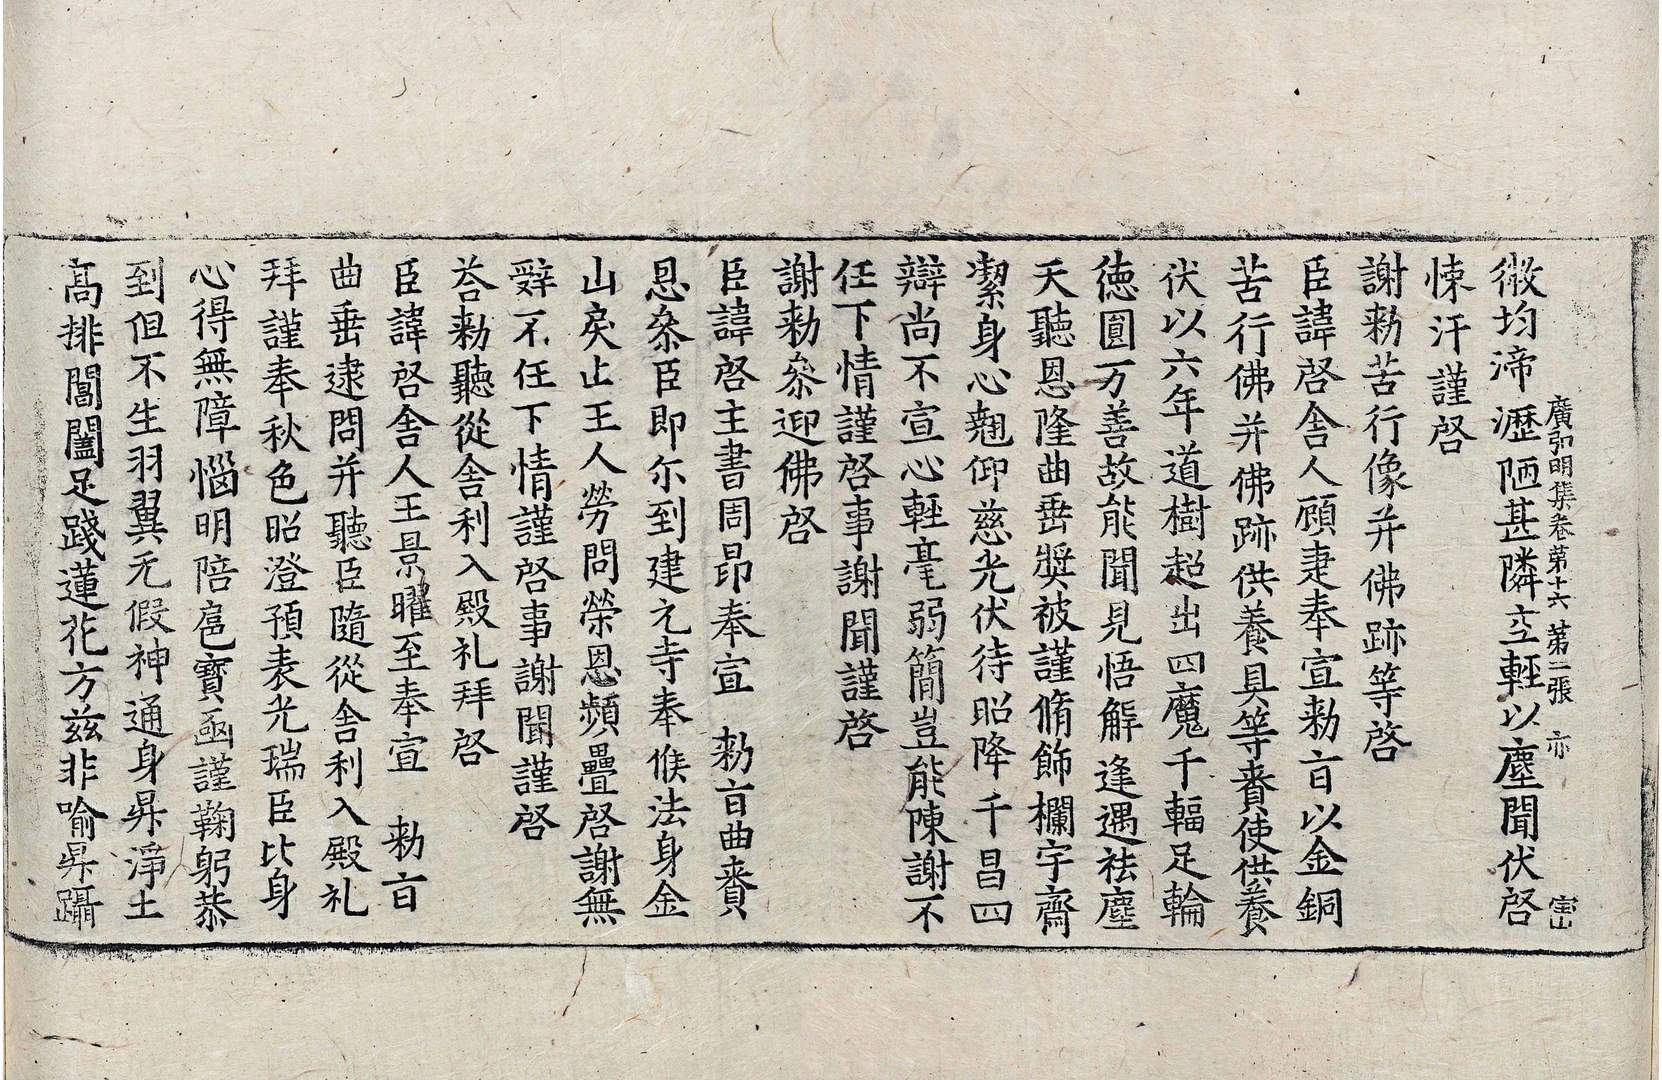 廣弘明集卷第十六 第二張 亦 宝山
微均渧瀝陋甚隣空輕以塵聞伏啓
悚汗謹啓
謝勑苦行像并佛跡等啓
臣諱啓舎人顧䢖奉宣勑㫖以金銅
苦行佛并佛跡供養具等賚使供養
伏以六年道樹超出四魔千輻足輪
德圓万善故能聞見悟解逢遇袪塵
天聽恩隆曲垂奬被謹脩飾欄宇齋
潔身心翹仰慈光伏待昭降千昌四
辯尚不宣心輊毫弱簡豈能陳謝不
任下情謹啓事謝聞謹啓
謝勑叅迎佛啓
臣諱啓主書周昂奉宣 勑㫖曲賚
恩叅臣即尔到建元寺奉候法身金
山戾止王人勞問榮恩頻疊啓謝無
辤不任下情謹啓事謝聞謹啓
荅勑聽從舍利入殿礼拜啓
臣諱啓舎人王景曜至奉宣 勑㫖
曲垂逮問并聽臣隨從舍利入殿礼
拜謹奉秋色昭澄預表光瑞臣比身
心得無障惱明陪扈寶函謹鞠躬恭
到但不生羽翼无假神通身昇淨土
髙排閶闔足踐蓮花方兹非喻昇躡